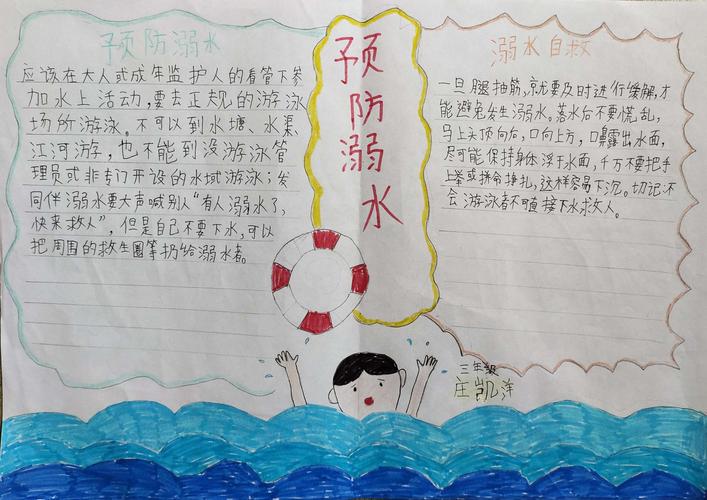 预防溺水
应该在大人或成年监护人的看管下参
加水上活动,要去正规的游泳
场所游泳。不可以到水塘、水渠
江河游字,也不能到没游泳管
理员或非专门开设的水域游泳;发
同伴溺水要大声喊别人“有人溺水了,
快来救人”,但是自己不要下水,可以
把周围的救生圈等扔给溺水者。
预防溺水
溺水自救
一旦腿抽筋,就要及时进行缓解,才
能避免发生溺水。落水后不要慌乱,
马上头顶向后,口向上方,口鼻露出水面,
尽可能保持身体浮于水面,千万不要把手
上举或拼命挣扎,这样容易下沉。切记不
会游泳者不可直接下水救人。
三年级
庄凯洋